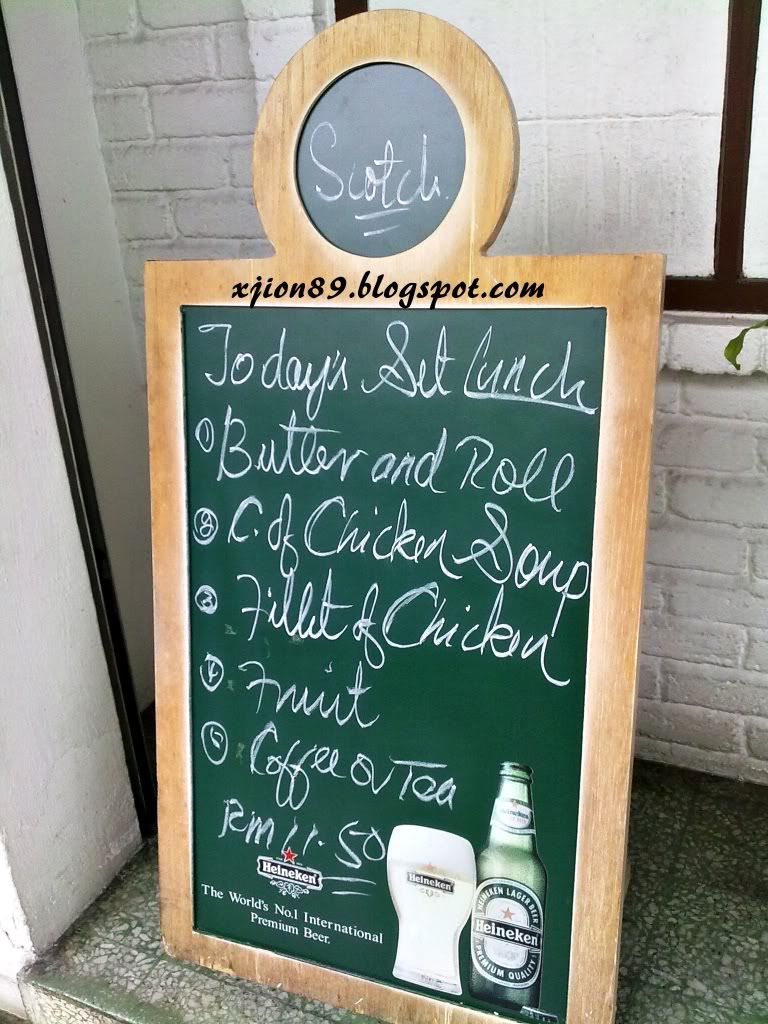 Scotch.
xjion89.blogspot.com
Today's Set Lunch
① Butter and Roll
② C. of Chicken Soup
③ Fillet of Chicken
④ Fruit
⑤ Coffee or Tea
RM 11.50
Heineken
The World's No.1 International
Premium Beer.
Heineken
HEINEKEN LAGER BEER
Heineken
PREMIUM QUALITY